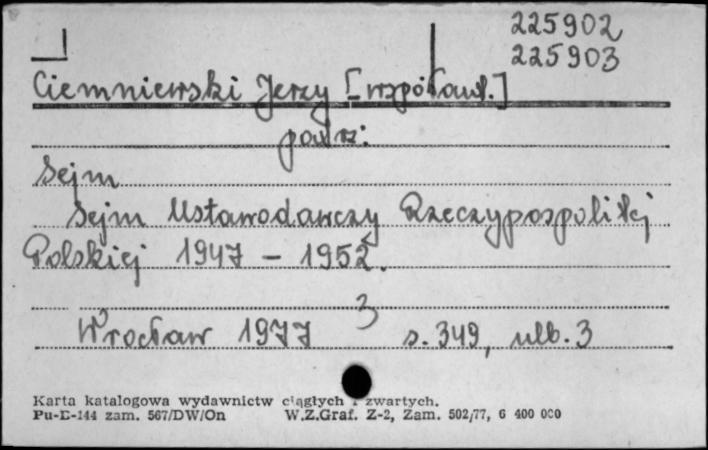 225902
225903
Ciemniewski Jerzy [współaut.]
patrz:
Sejm
Sejm Ustawodawczy Rzeczypospolitej
Polskiej 1947 - 1952.
3
Wrocław 1977 s. 349, nlb. 3
Karta katalogowa wydawnictw ciągłych i zwartych.
Pu-D-144 zam. 567/DW/On W.Z.Graf. Z-2, Zam. 502/77, 6 400 000